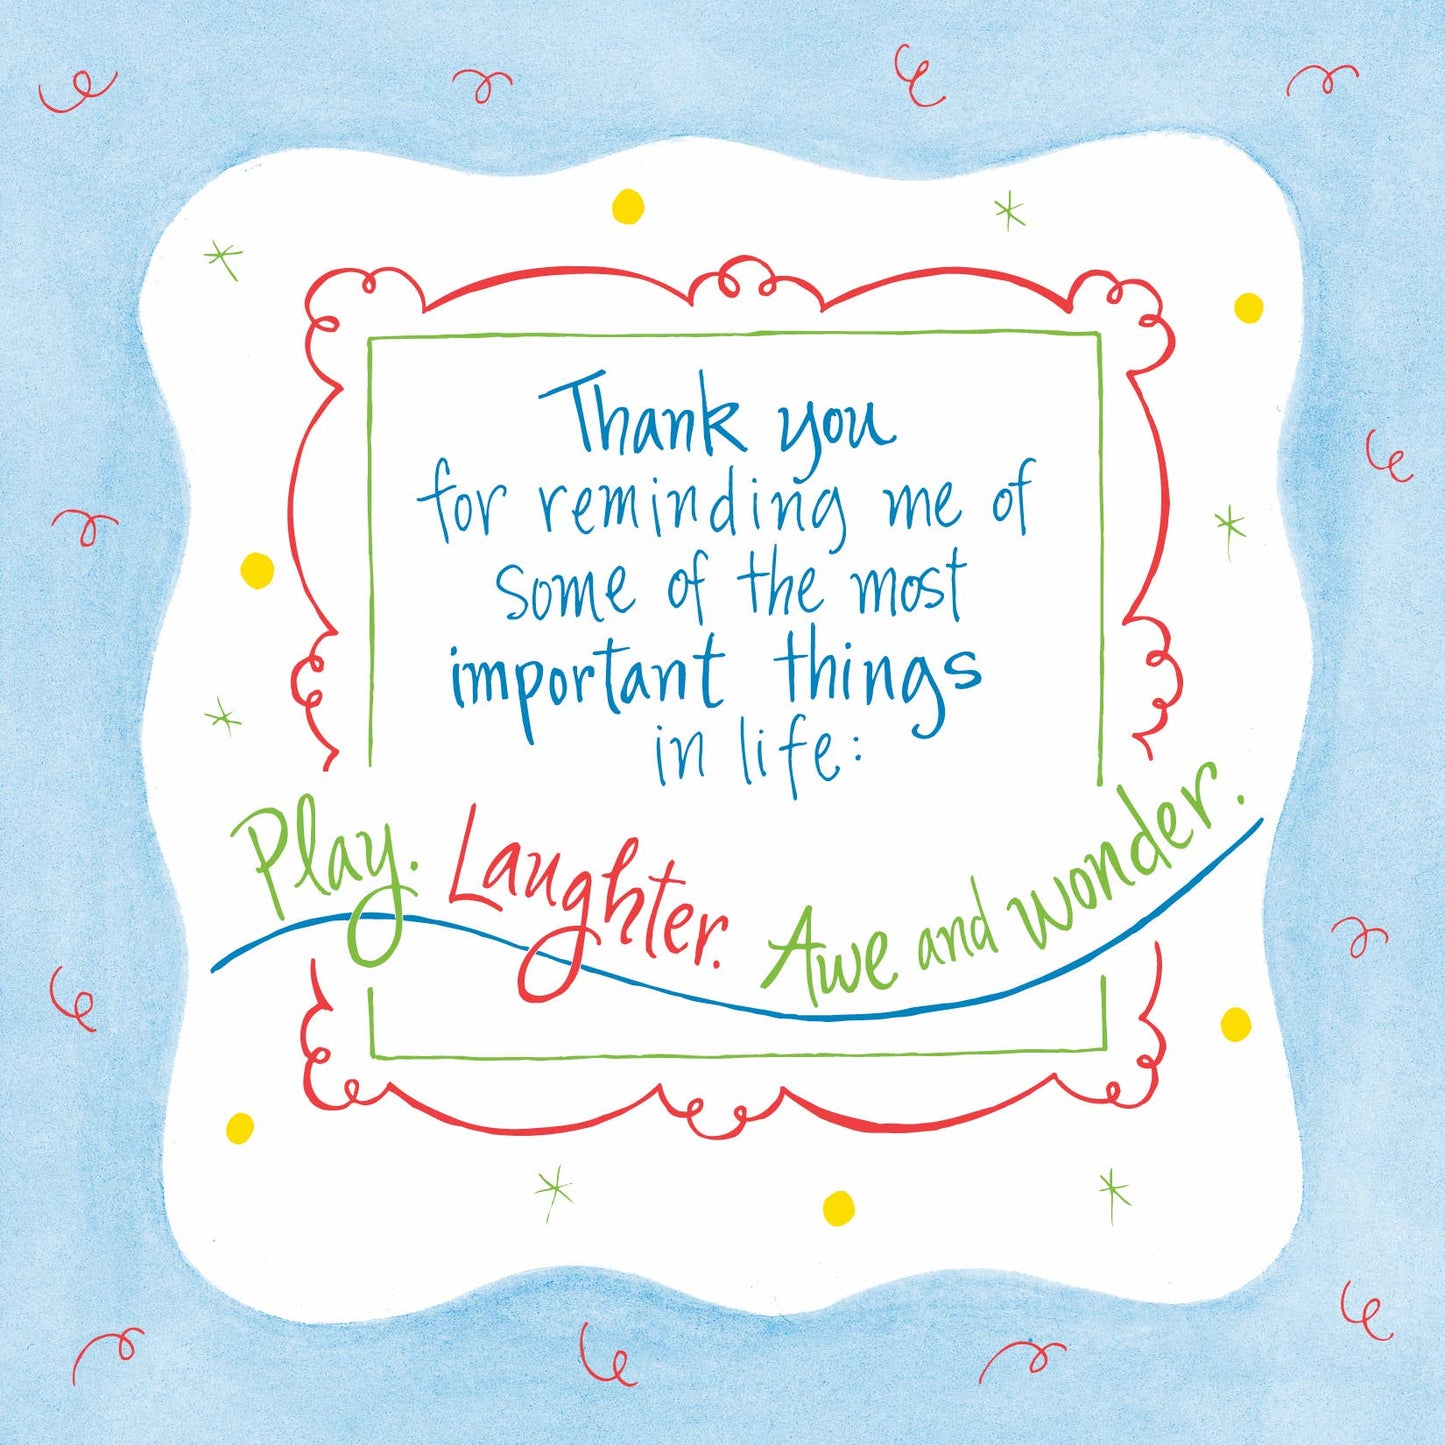 Thank you
for reminding me of
some of the most
important things
in life:
Play. Laughter. Awe and wonder.